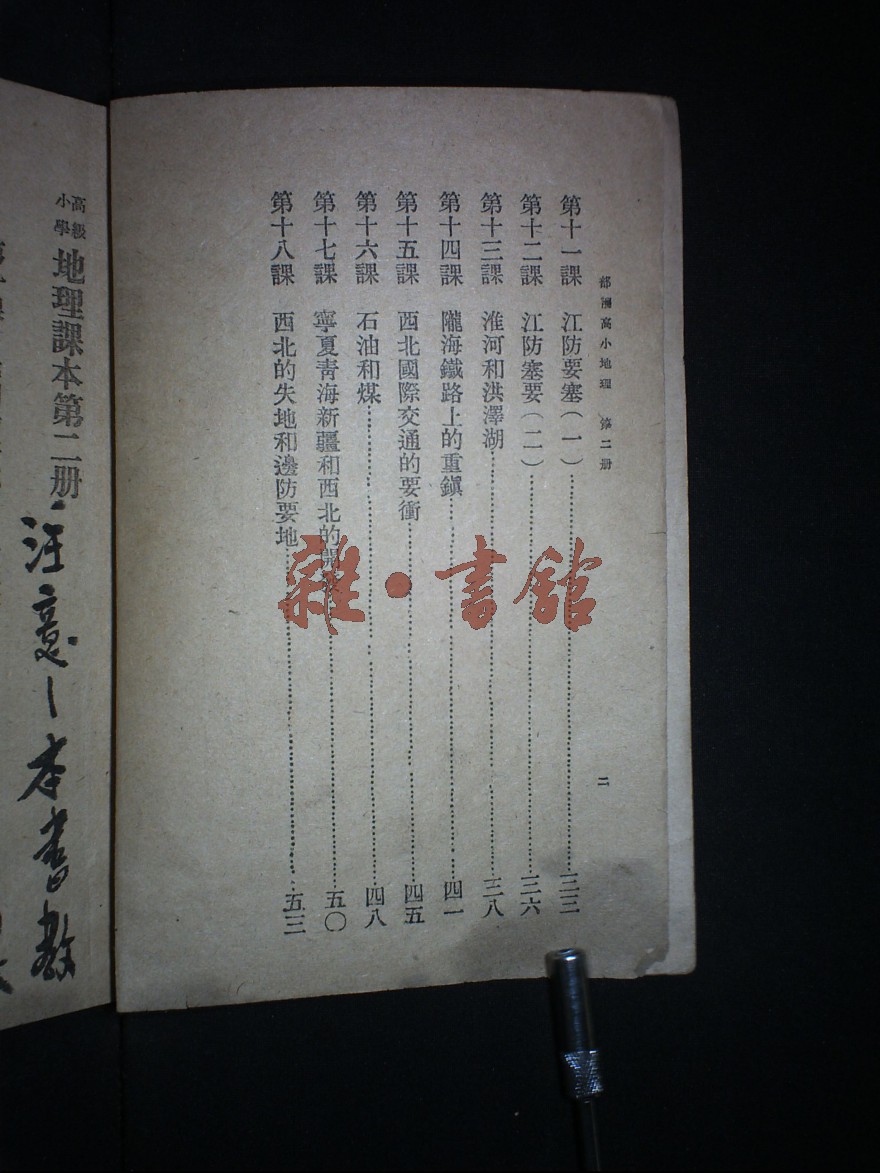 部頒高小地理 第二册
二
第十一課 江防要塞(一)……三三
第十二課 江防塞要(二)……三六
第十三課 淮河和洪澤湖……三八
第十四課 隴海鐵路上的重鎮……四一
第十五課 西北國際交通的要衝……四五
第十六課 石油和煤……四八
第十七課 寧夏青海新疆和西北的開……五〇
第十八課 西北的失地和邊防要地……五三
雜·書館
高級小學 地理課本第二册
注意一本書